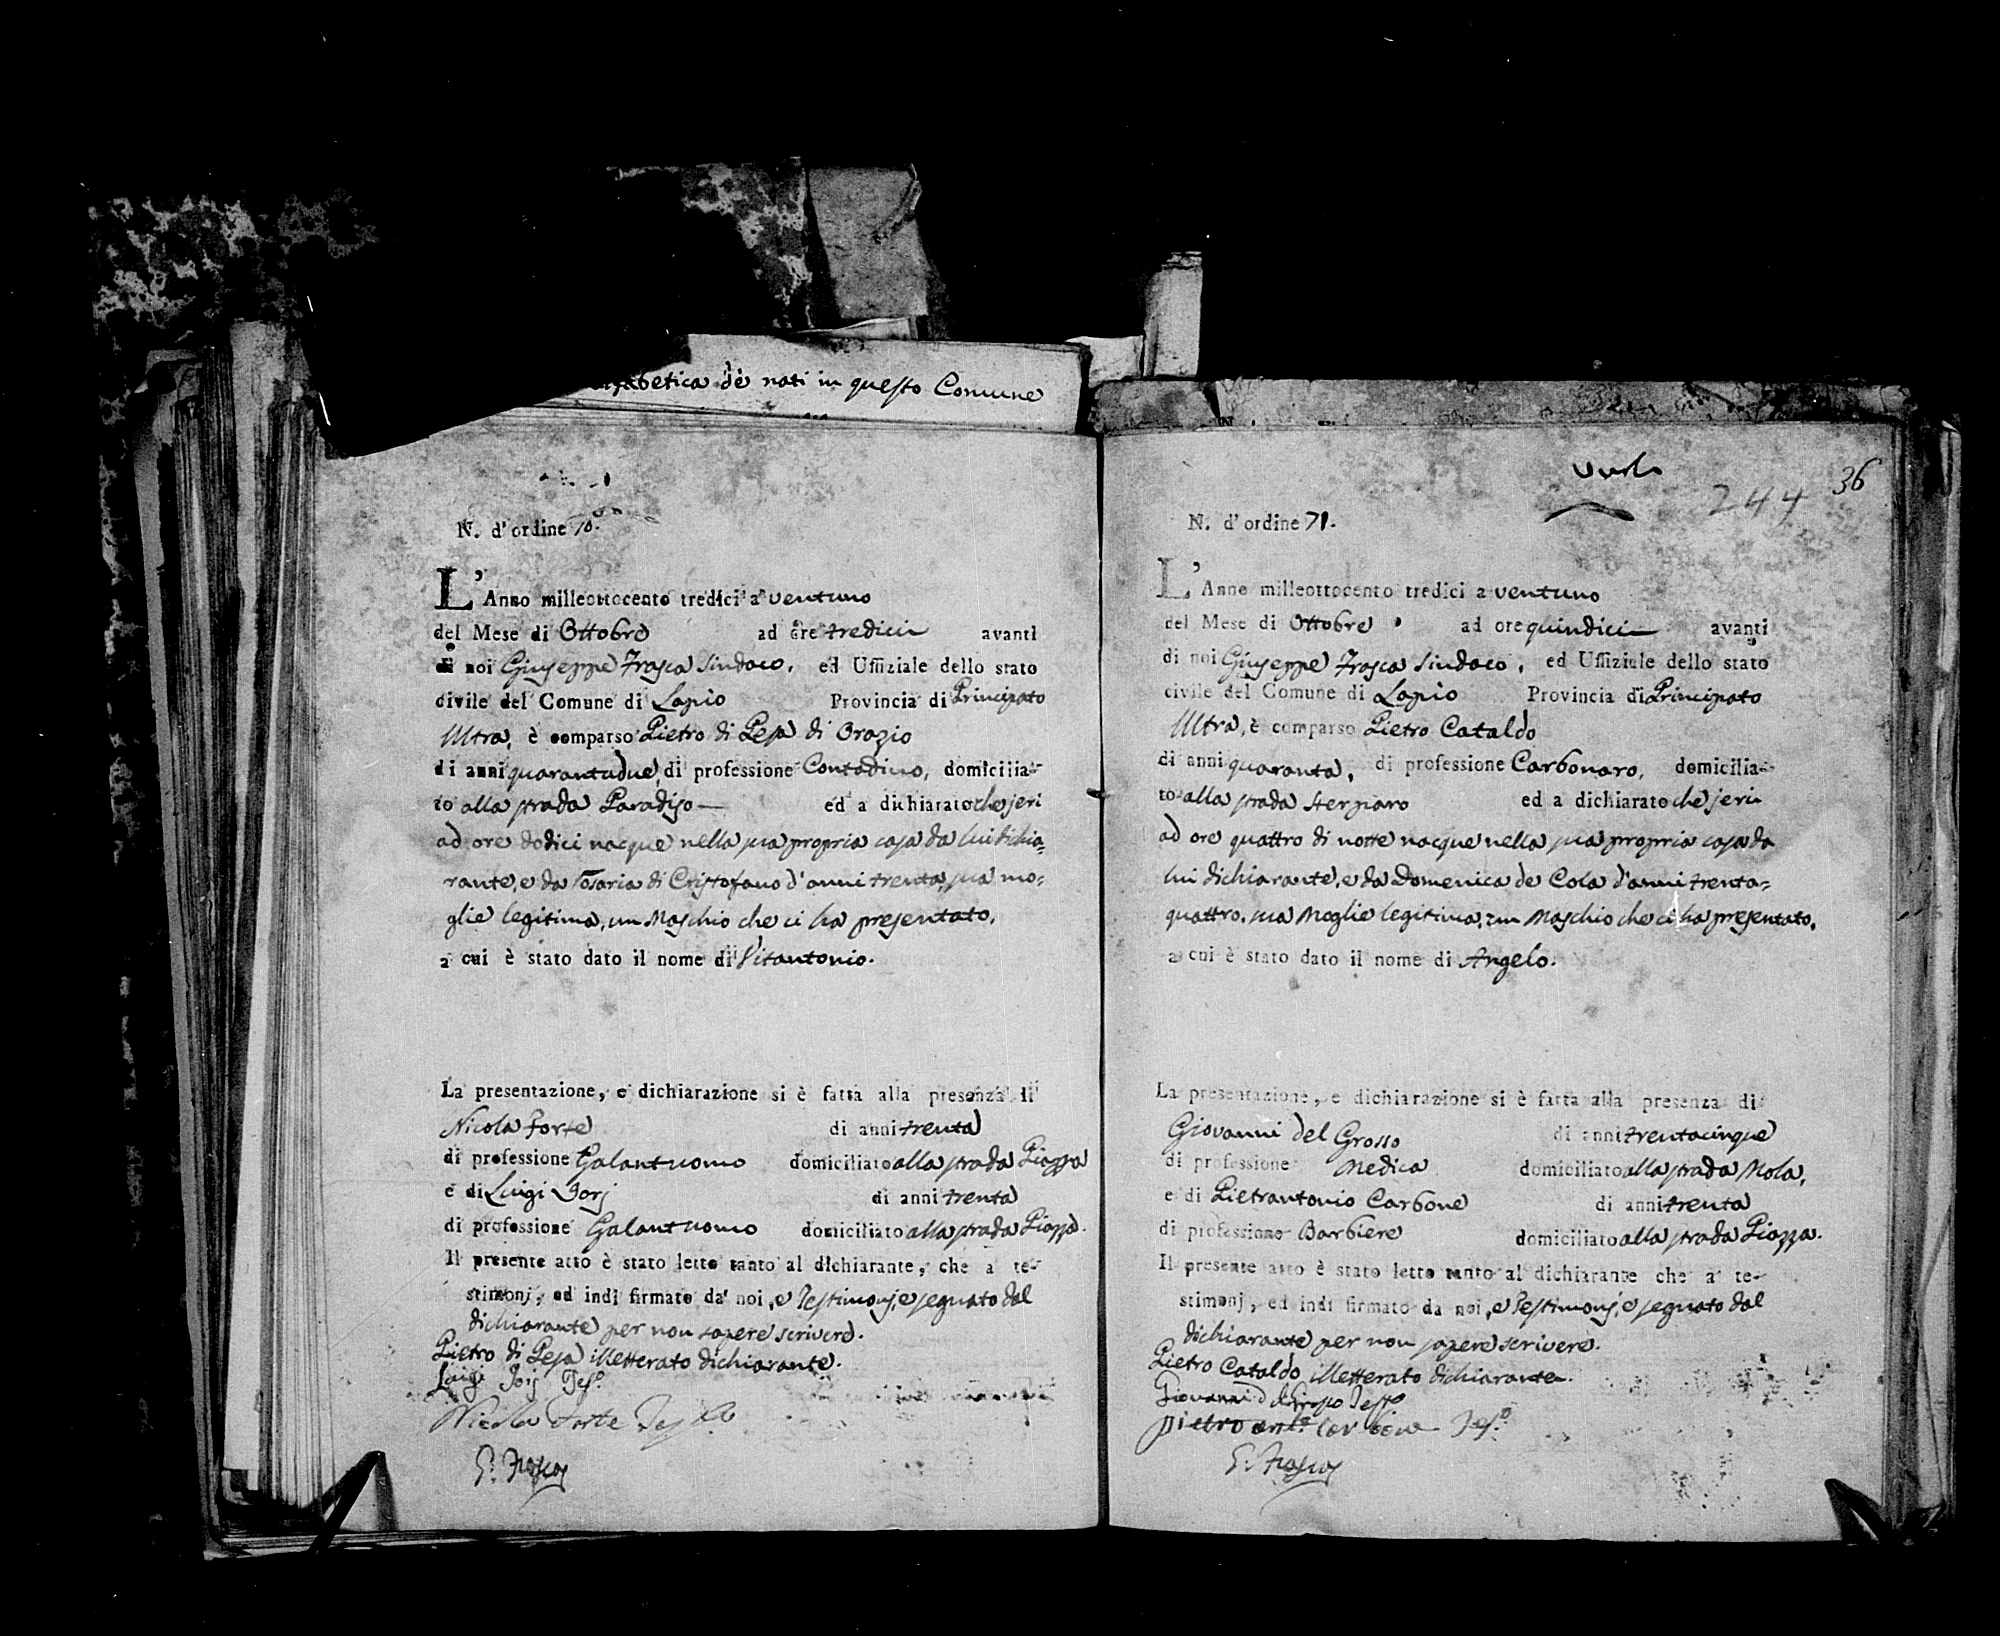 alfabetica de nati in questo Comune
N. d'ordine 70.
L'Anno milleottocento tredici a ventuno
del Mese di Ottobre ad ore tredici avanti
di noi Giuseppe Frasca Sindaco, ed Uffiziale dello stato
civile del Comune di Lapio Provincia di Principato
Ultra, è comparso Pietro di Pesa di Orazio
di anni quarantadue, di professione Contadino, domicilia-
to alla strada Paradiso ed a dichiarato che jeri
ad ore dodici nacque nella sua propria casa da lui dichia=
rante, e da Rosaria di Cristofano d'anni trenta, sua mo=
glie legitima, un Maschio che ci ha presentato,
a cui è stato dato il nome di Vitantonio.
La presentazione, e dichiarazione si è fatta alla presenza di
Nicola Forte di anni trenta
di professione Galantuomo domiciliato alla strada Piazza
e di Luigi Jorj di anni trenta
di professione Galantuomo domiciliato alla strada Piazza.
Il presente atto è stato letto tanto al dichiarante, che a' te-
stimonj, ed indi firmato da' noi, e Testimonj, e segnato dal
dichiarante per non sapere scrivere.
Pietro di Pesa illetterato dichiarante.
Luigi Jorj Tes.o
Nicola Forte Test.o
G. Frasca
36
244
N. d'ordine 71.
L'Anno milleottocento tredici a ventuno
del Mese di Ottobre ad ore quindici avanti
di noi Giuseppe Frasca Sindaco, ed Uffiziale dello stato
civile del Comune di Lapio Provincia di Principato
Ultra, è comparso Pietro Cataldo
di anni quaranta, di professione Carbonaro, domicilia-
to alla strada Sterparo ed a dichiarato che jeri
ad ore quattro di notte nacque nella sua propria casa da
lui dichiarante, e da Domenica de Cola d'anni trenta=
quattro, sua Moglie legitima, un Maschio che ci ha presentato,
a cui è stato dato il nome di Angelo.
La presentazione, e dichiarazione si è fatta alla presenza di
Giovanni del Grosso di anni trentacinque
di professione Medica domiciliato alla strada Mola,
e di Pietrantonio Carbone di anni trenta
di professione Barbiere domiciliato alla strada Piazza.
Il presente atto è stato letto tanto al dichiarante che a' te-
stimonj, ed indi firmato da noi, e Testimonj, e segnato dal
dichiarante per non sapere scrivere.
Pietro Cataldo illetterato dichiarante.
Giovanni del Grosso Test.o
pietro ant.o Carbone Tes.o
G. Frasca